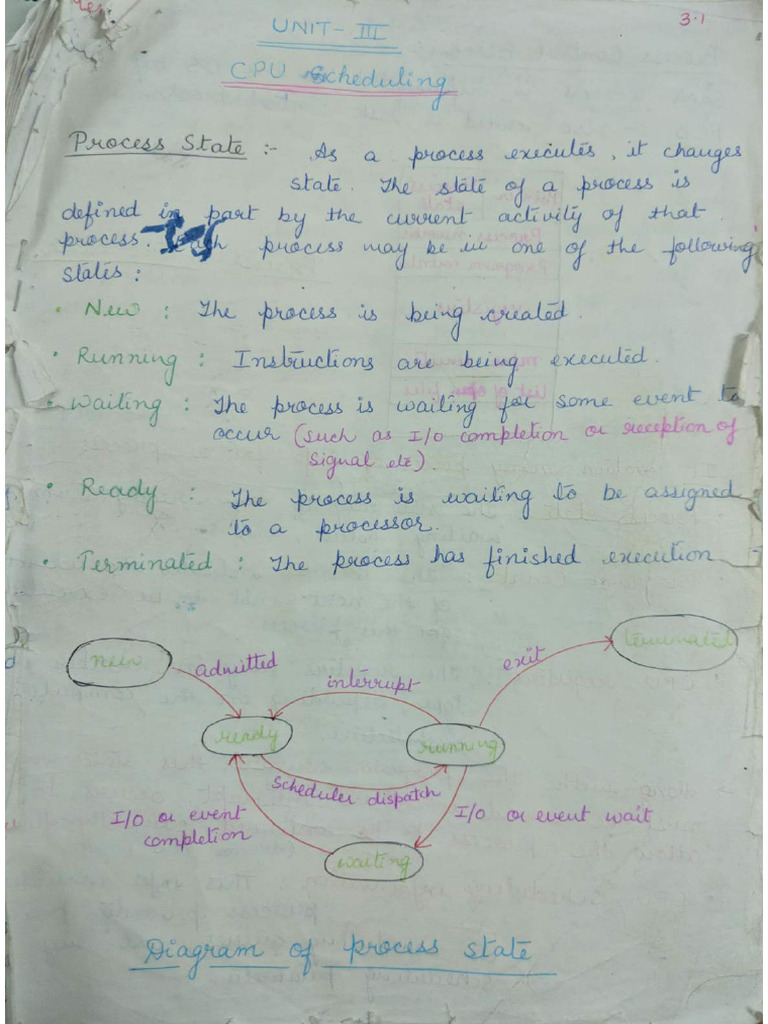 3.1
UNIT-III
CPU Scheduling
Process State :- As a process executes, it changes
state. The state of a process is
defined in part by the current activity of that
process. Each process may be in one of the following
states :
• New : The process is being created.
• Running : Instructions are being executed.
• Waiting : The process is waiting for some event to
occur (such as I/O completion or reception of
signal etc).
• Ready : The process is waiting to be assigned
to a processor.
• Terminated : The process has finished execution
new
admitted
interrupt
exit
terminated
ready
running
scheduler dispatch
I/O or event
completion
I/O or event wait
waiting
Diagram of process state